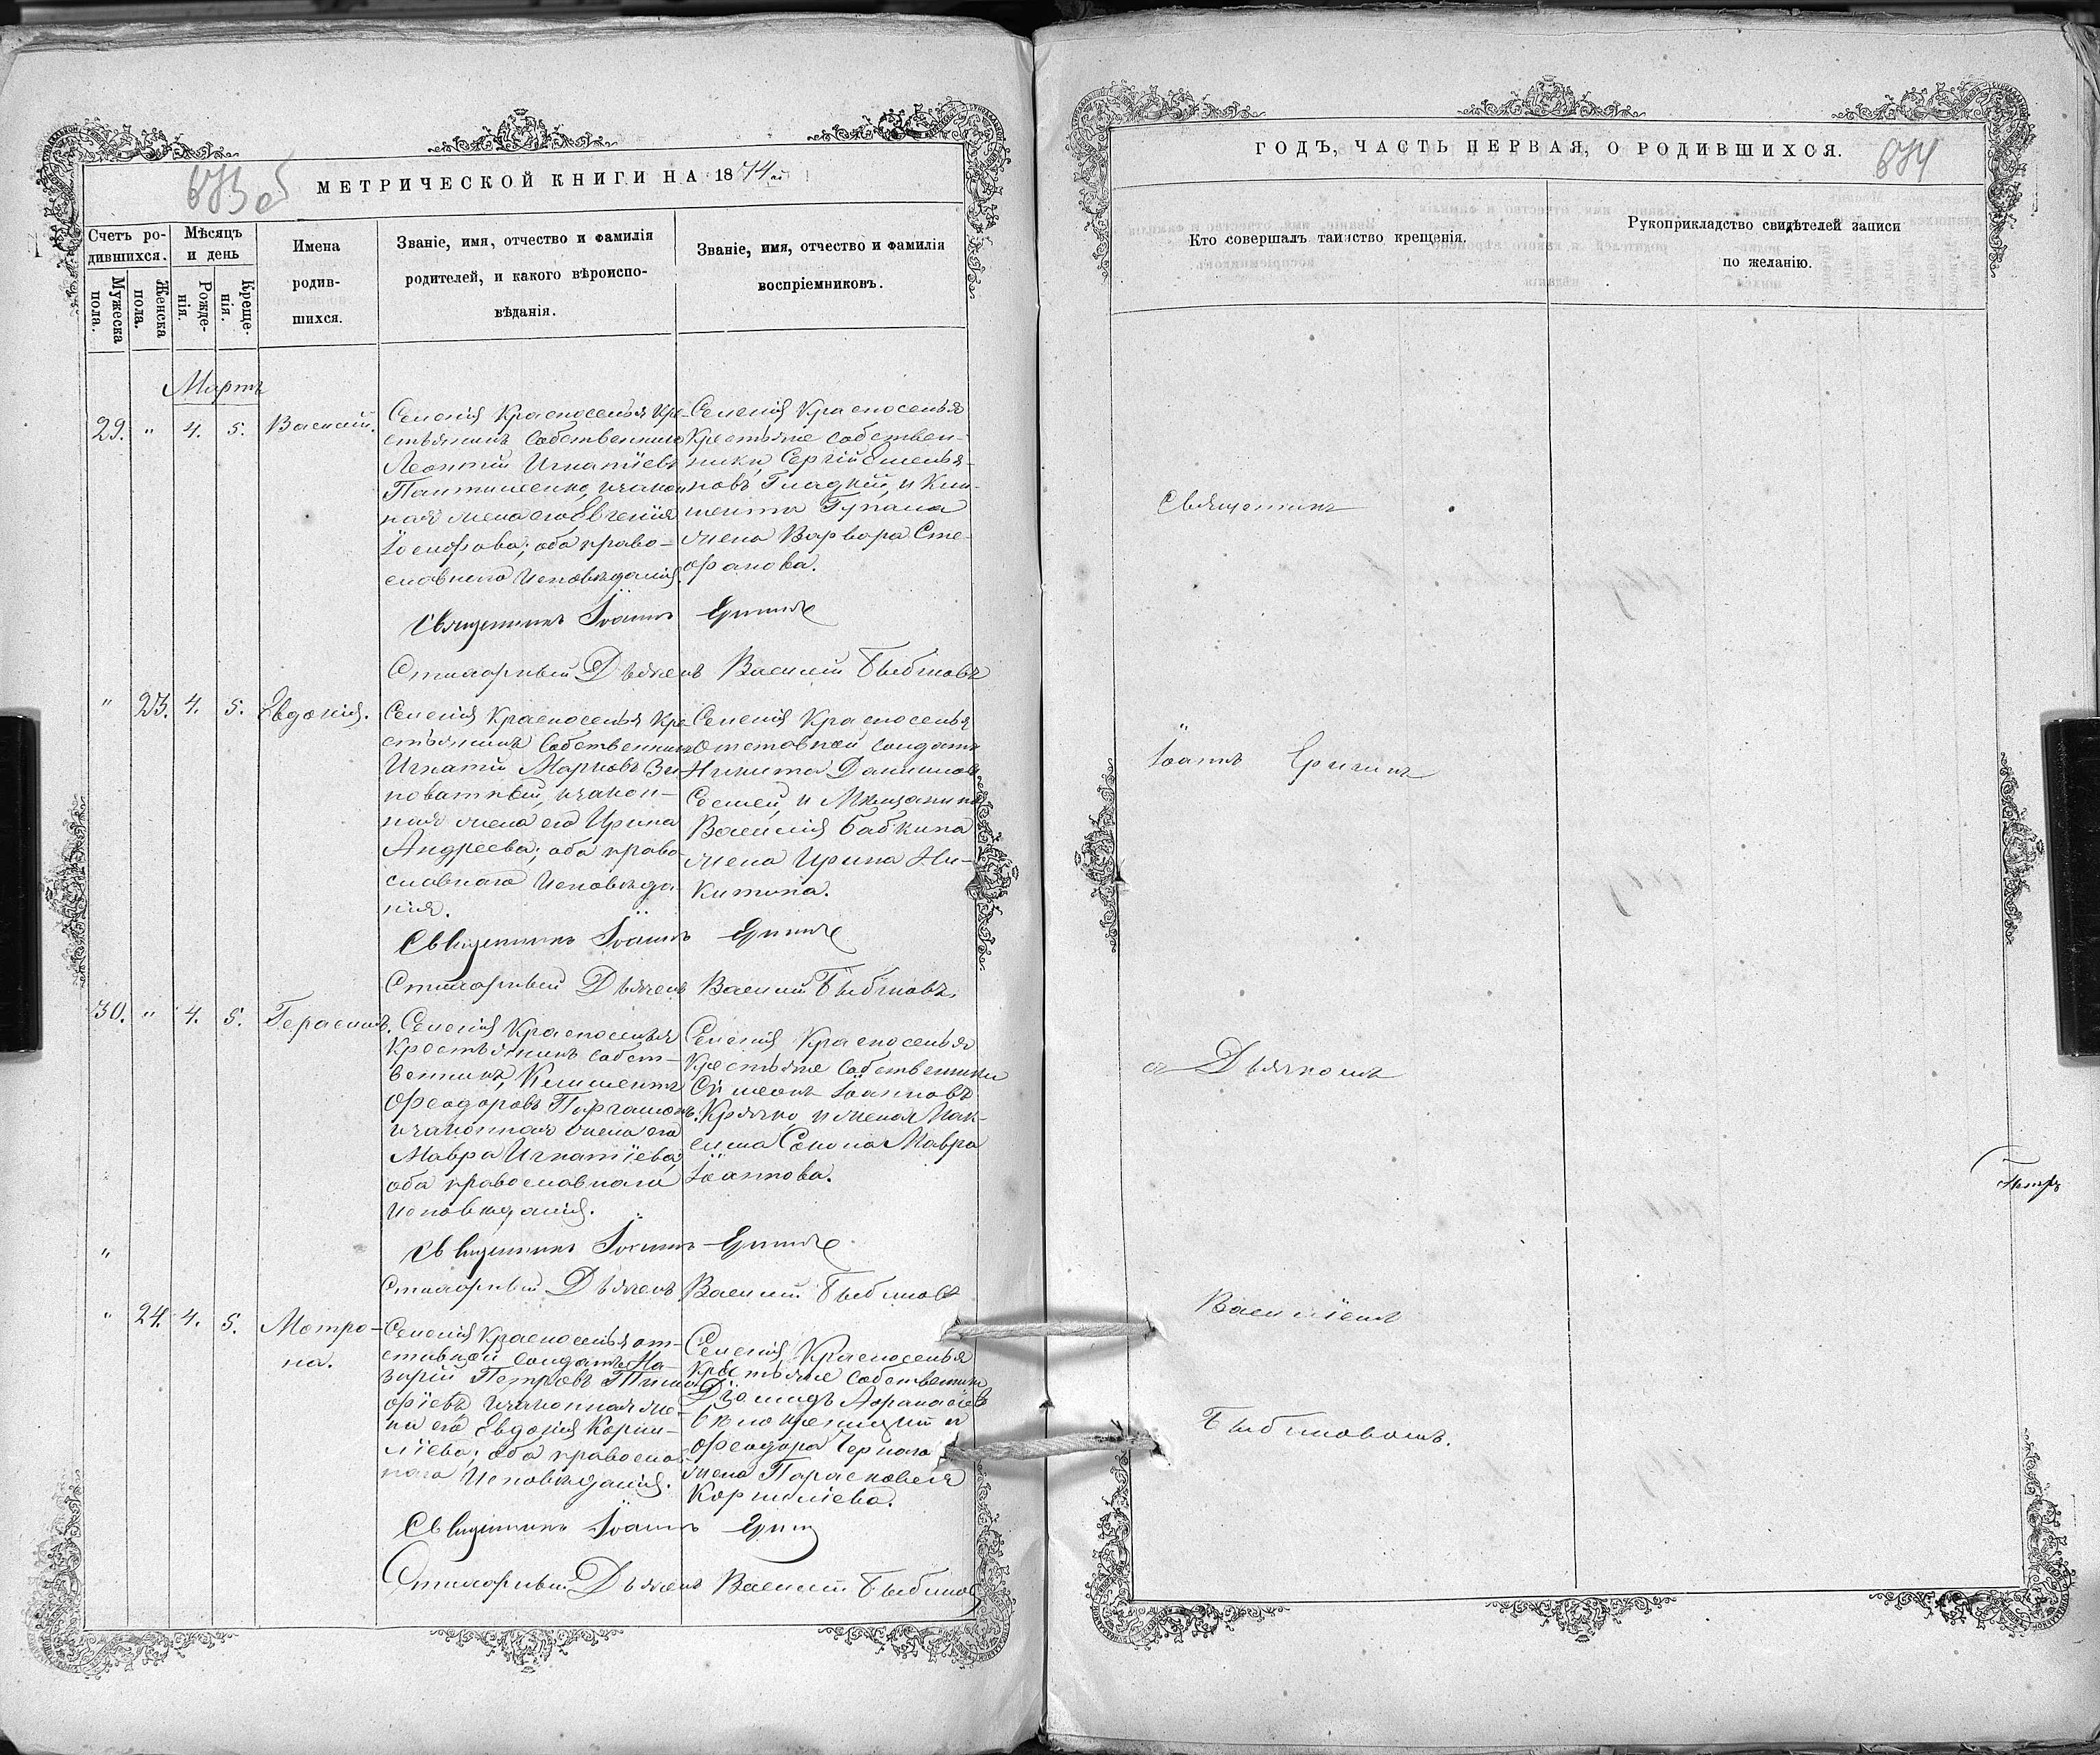 673 об
МЕТРИЧЕСКОЙ КНИГИ НА 1874 й
Счетъ ро-
дившихся.
Мужеска пола.
Женска пола.
Мѣсяцъ
и день
Рожде-
нія.
Креще-
нія.
Имена
родив-
шихся.
Званіе, имя, отчество и фамилія
родителей, и какого вѣроиспо-
вѣданія.
Званіе, имя, отчество и фамилія
воспріемниковъ.
Мартъ
29. " 4. 5. Василій.
Селенія Красноселья кре-
стьянинъ собственникъ
Леонтій Игнатіевъ
законная
жена его Евгенія
Іосифова; оба право-
славнаго исповѣданія.
Селенія Красноселья
Крестьяне собствен-
ники, Сергій Емелья-
новъ Гладкій, и Кли-
мента
жена Варвара Сте-
фанова.
Священникъ Іоаннъ
Стихарный Дьячекъ Василій
" 23. 4. 5. Евдокія.
Селенія Красноселья кре-
стьянинъ собственникъ
Игнатій Марковъ Ви-
новатный, и закон-
ная жена его Ирина
Андреева; оба право-
славнаго исповѣда-
нія.
Селенія Красноселья
отставной солдатъ
Никита Даниловъ
и Мѣщанина
Василія Бабкина
жена Ирина Ни-
китина.
Священникъ Іоаннъ
Стихарный Дьячекъ Василій
30. " 4. 5. Герасимъ.
Селенія Красноселья
Крестьянинъ собст-
венникъ, Климентъ
Феодоровъ
и законная жена его
Мавра Игнатіева;
оба православнаго
исповѣданія.
Селенія Красноселья
Крестьяне собственники
Симеонъ Іоанновъ
Крячко, и жена Мак-
сима Мавра
Іоаннова.
Священникъ Іоаннъ
"
Стихарный Дьячекъ Василій
" 24. 4. 5. Матро-
на.
Селенія Красноселья от-
ставной солдатъ На-
зарій Петровъ Тимо-
фіевъ и законная же-
на его Евдокія Корни-
ліева; оба православ-
наго исповѣданія.
Селенія Красноселья
Крестьяне собственники
Діомидъ Афанасіевъ
и
Феодора Чернаго
жена Параскевія
Корниліева.
Священникъ Іоаннъ
Стихарный Дьячекъ Василій
674
ГОДЪ, ЧАСТЬ ПЕРВАЯ, О РОДИВШИХСЯ.
Кто совершалъ таинство крещенія.
Рукоприкладство свидѣтелей записи
по желанію.
Священникъ
Іоаннъ
съ Дьячкомъ
Василіемъ